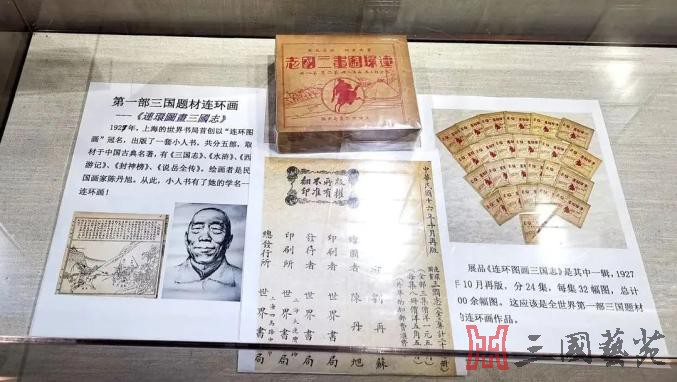 第一部三国题材连环画
——《連環圖畫三國志》
1927年，上海的世界书局首创以“连环图
画”冠名，出版了一套小人书，共分五部，取
材于中国古典名著，有《三国志》、《水浒》、《西
游记》、《封神榜》、《说岳全传》。绘画者是民
国画家陈丹旭。从此，小人书有了她的学名—
连环画！
連環圖畫三國志
版權所有
翻印不准
中華民國十六年十月再版
連環圖畫三國志
繪圖者 陳丹旭
發行者 世界書局
印刷所 世界書局
總發行所 世界書局
展品《连环图画三国志》是其中一辑，1927
年10月再版，分24集，每集32幅图，总计
00余幅图。这应该是全世界第一部三国题材
的连环画作品。
三國藝苑